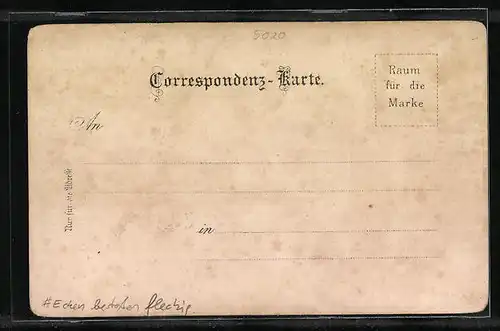 5020
Correspondenz-Karte.
Raum
für die
Marke
An
Nur für die Adresse
in
#Ecken bestoßen fleckig.